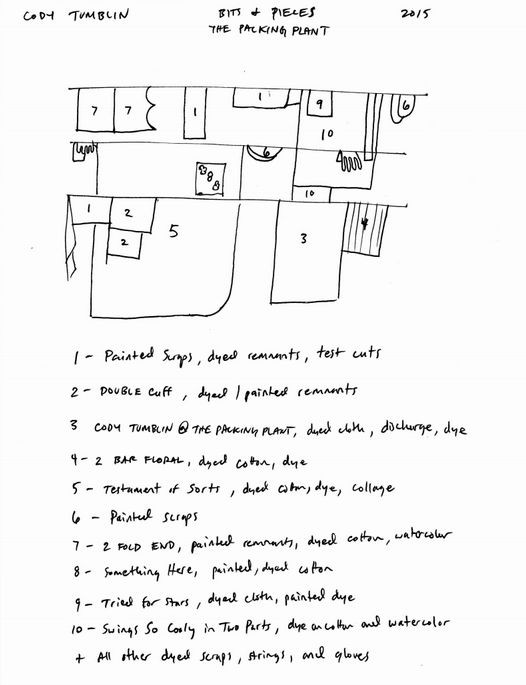 CODY TUMBLIN BITS & PIECES 2015
THE PACKING PLANT
7 7 1 1 9 6
10
6
8
8
8
10
1 2
5 3 4
2
1 - Painted Scraps, dyed remnants, test cuts
2 - DOUBLE Cuff, dyed / painted remnants
3 CODY TUMBLIN @ THE PACKING PLANT, dyed cloth, discharge, dye
4 - 2 BAR FLORAL, dyed cotton, dye
5 - Testament of Sorts, dyed cotton, dye, collage
6 - Painted Scraps
7 - 2 FOLD END, painted remnants, dyed cotton, watercolor
8 - Something Here, painted, dyed cotton
9 - Tried for Stars, dyed cloth, painted dye
10 - Swings So Cooly in Two Parts, dye on cotton and watercolor
+ All other dyed scraps, strings, and gloves